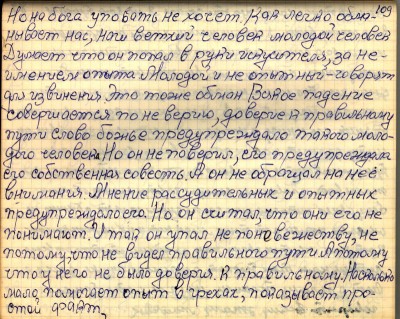 109
Но на бога уповать не хочет. Как легко, обма-
нывает нас, наш ветхий человек молодой человек
Думает что он попал в руки искусителя, за не-
имением опыта Молодой и не опытный - говорят
для извинения Это тоже обман Всякое падение
совершается по не верию, доверие к правильному
пути слово божье предупреждало такого моло-
дого человека Но он не поверил, его предупреждала
его собственная совесть. А он не обращал на неё
внимания. Мнение рассудительных и опытных
предупреждало его. Но он считал, что они его не
понимают. Итак он упал не по невежеству, не
потому, что не видел правильного пути А потому
что у него не было доверия. К правильному. Насколько
мало помогает опыт в грехах, показывает про-
стой факт,